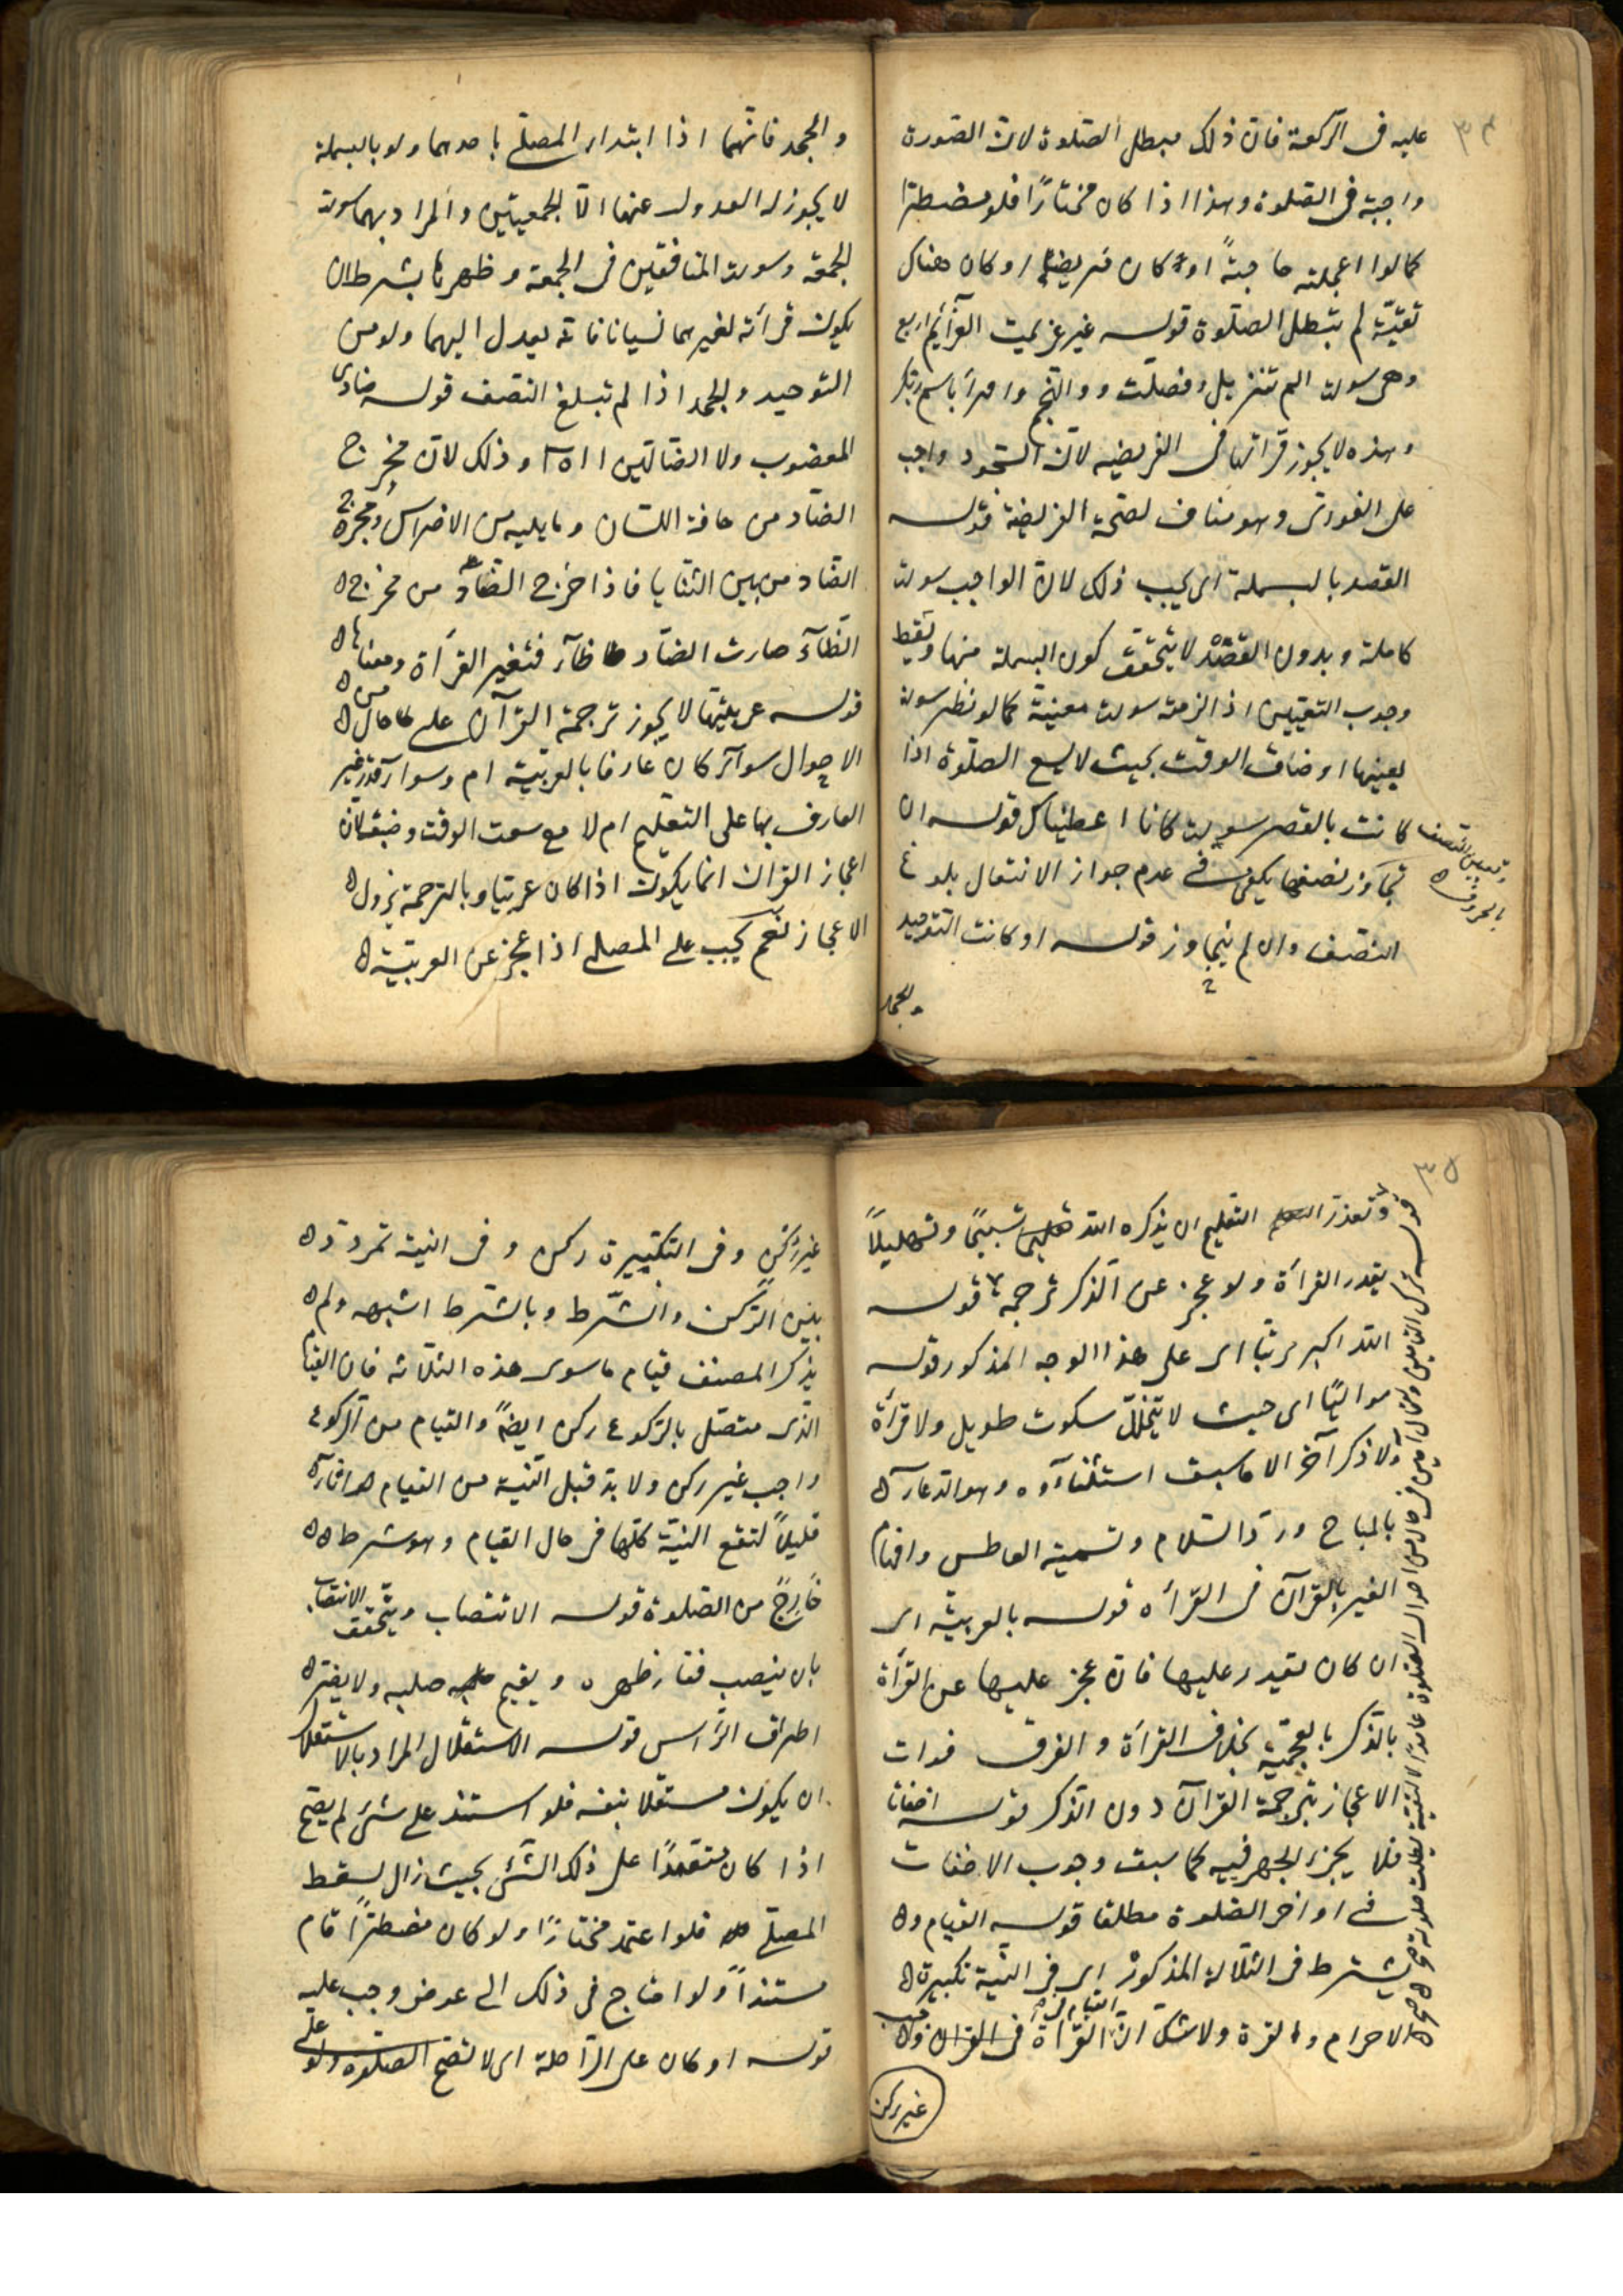 ٣٤
عليه فى الركعة فان ذلك مبطل الصلوة لان السورة
واجبة فى الصلوة وهذا اذا كان مختارًا فلو مضطرا
كما لو اعجلته حاجةً او كان مريضا او كان هناك
تقيّة لم تبطل الصلوة قوله غير عزيمت العزائم اربع
وهى سورت الم تنزيل وفصلت و والنجم واقرأ باسم ربك
وهذه لا يجوز قرائتها فى الفريضه لان السجود واجب
على الفور وهو مناف لصحة الفريضة قوله
القصد بالبسملة اى يجب ذلك لان الواجب سورت
كاملة وبدون القصد لا يتحقق كون البسملة منها ويسقط
وجوب التعيين اذا لزمته سورت معينة كما لو نظر سورت
بعينها او ضاق الوقت بحيث لا يسع الصلوة اذا
كانت بالقصر سورت كانا اعطيناك قوله ان
تجاوز نصفها يكفى فى عدم جواز الانتقال بلوغ
النصف وان لم يتجاوز قوله او كانت التوحيد
والجحد
وتعيين النصف
بالحروف
والجحد فانهما اذا ابتداء المصلى باحدهما ولو بالبسملة
لا يجوز له العدول عنها الّا للجمعيتين والمراد بهما سورت
الجمعة وسورت المنافقين فى الجمعة وظهرها بشرط ان
يكون قرأته لغيرهما نسيانا فانه يعدل اليهما ولو من
التوحيد والجحد اذا لم تبلغ النصف قوله ضادى
المغضوب ولا الضالين ااه وذلك لان مخرج
الضاد من حافة اللسان وما يليه من الاضراس ومخرج
الضاد من بين الثنايا فاذا خرج الضاد من مخرج
الظآء صارت الضاد ظآء فتغير القرأة ومعناها
قوله عربيتها لا يجوز ترجمة القرآن على حال من
الاحوال سوآء كان عارفا بالعربية ام وسوآء قدر غير
العارف بها على التعليم ام لا مع سعت الوقت وضيقه لان
اعجاز القران انما يكون اذا كان عربيا وبالترجمة يزول
الاعجاز نعم يجب على المصلى اذا عجز عن العربية
٣٥
وتعذر التعليم ان يذكره الله تسبيحًا وتهليلاً
بقدر القرأة ولو عجز عن الذكر ترجمه قوله
الله اكبر مرتبا اى على هذا الوجه المذكور قوله
مواليًا اى حيث لا يتخلل سكوت طويل ولا قرأة
ولا ذكر آخر الا ما سبق استثنآؤه وهو الدعآء
بالمباح ورد السلام وتسمية العاطس وافهام
الغير بالقرآن فى القرأه قوله بالعربية اى
ان كان يقدر عليها فان عجز عليها عن القرأة
بالذكر بالعجمية بخلاف القرأة والفرق فوات
الاعجاز بترجمة القرآن دون الذكر قوله اخفاتا
فلا يجزء الجهر فيه كما سبق وجوب الاخفات
فى اواخر الصلوة مطلقا قوله القيام و
يشترط فى الثلاثة المذكور اى فى النية تكبيرة
الاحرام والقرة ولا شك ان القرأة فى القران واجب
القيام
غير ركن
قوله ترك التامين ولو قال امين فى حال من احوال الصلوة عامدًا لا لتقية بطلت صلوته صح
غير ركن وفى التكبيرة ركن وفى النية تردد
بين الركن والشرط وبالشرط اشبه ولم
يذكر المصنف قيام ما سوى هذه الثلاثه فان القيام
الذى متصل بالركوع ركن ايضًا والقيام من الركوع
واجب غير ركن ولا بد قبل النية من القيام
قليلاً لتقع النية كلها فى حال القيام وهو شرط
خارج من الصلوة قوله الانتصاب ويتحقق الانتصاب
بان ينصب فقار ظهره ويقيم صلبه ولا يضر
اطراق الرأس قوله الاستقلال المراد بالاستقلال
ان يكون مستقلا بنفسه فلو استند على شئ لم يصح
اذا كان معتمدًا على ذلك الشئ بحيث زال لسقط
المصلى فلو اعتمد مختارًا ولو كان مضطرًا قام
مستندًا ولو احتاج فى ذلك الى عوض وجب عليه
قوله او كان على الراحلة اى لا تصح الصلوة ولو على